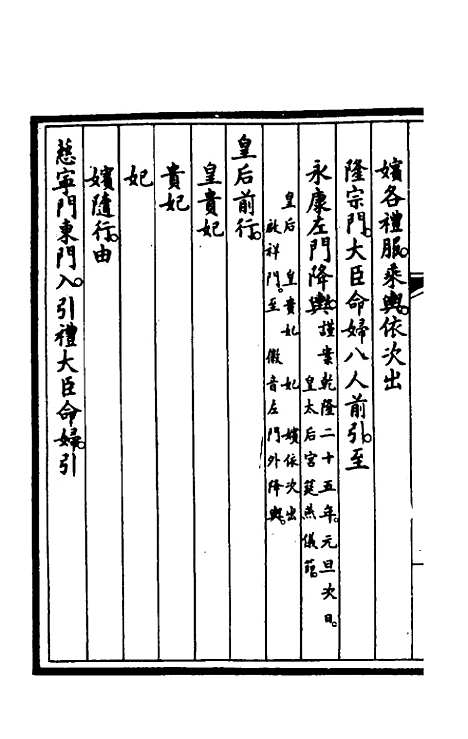 嬪各禮服。乘輿。依次出
隆宗門。大臣命婦八人前引。至
永康左門降輿。謹案乾隆二十五年。元旦次日。
皇太后宮筵燕儀節。
皇后 皇貴妃 妃 嬪依次出
啟祥門。至 徽音左門外降輿。
皇后前行。
皇貴妃
貴妃
妃
嬪隨行。由
慈寧門東門入。引禮大臣命婦。引